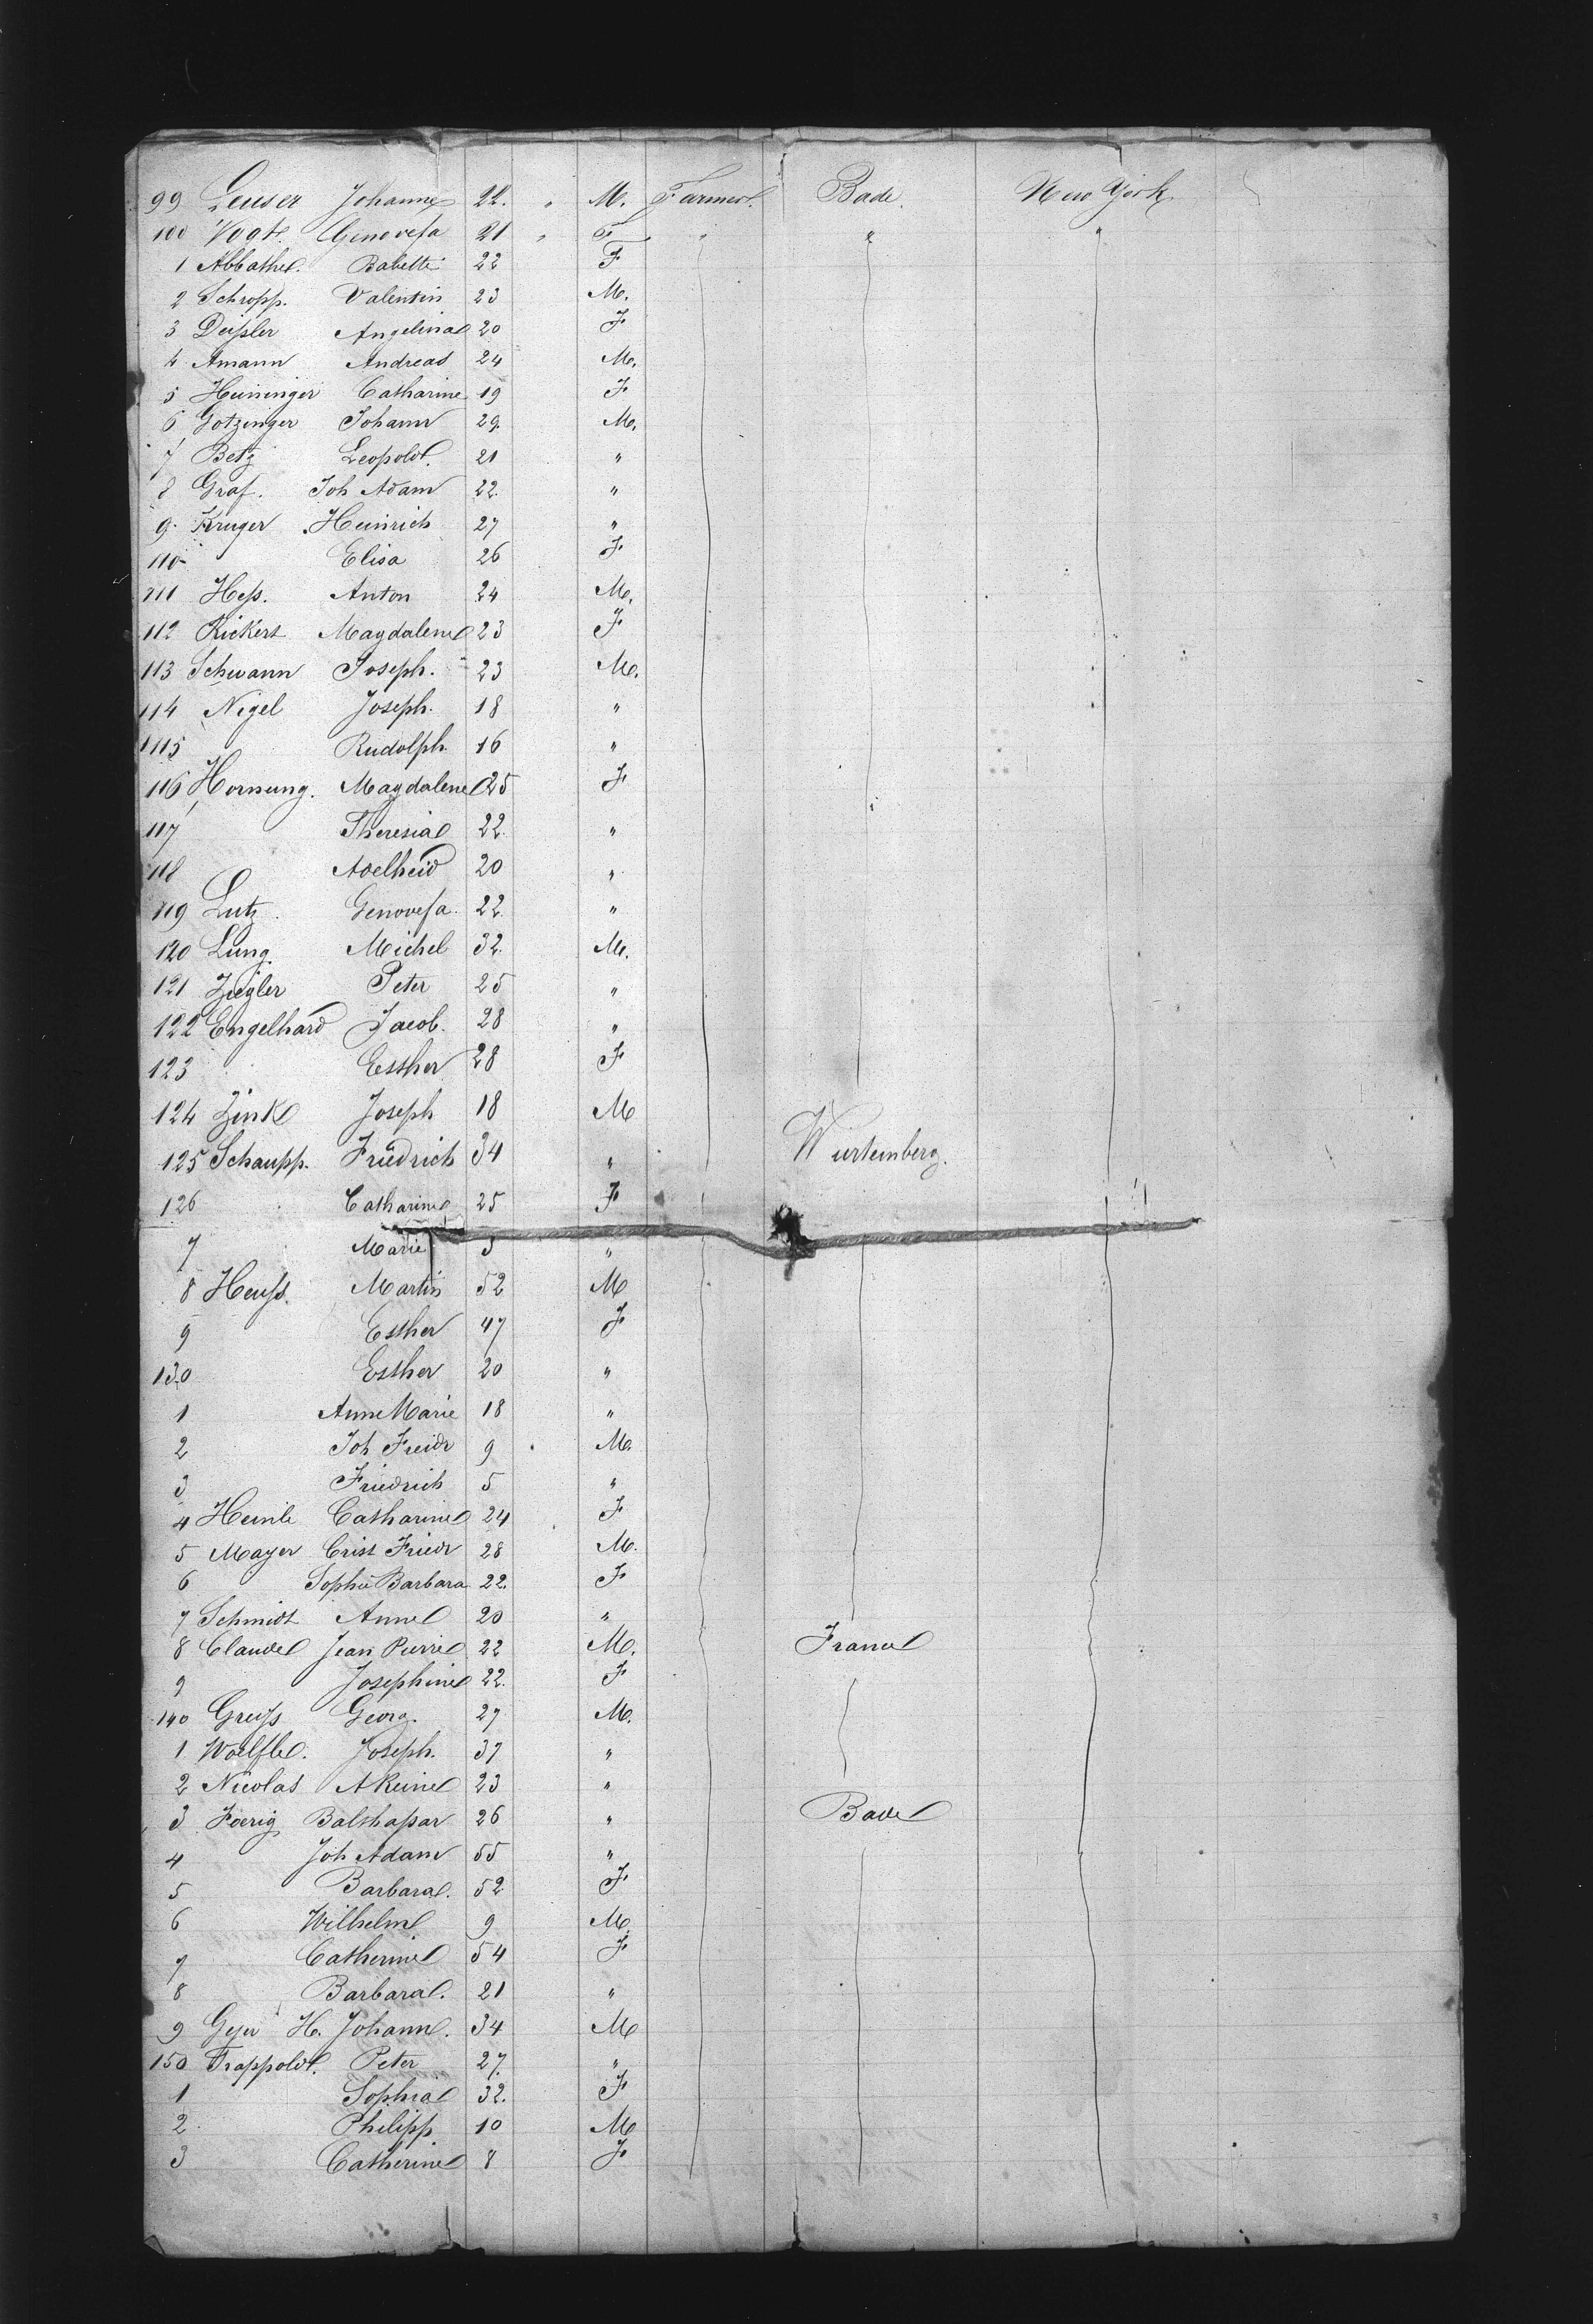 99 Leuser Johanne 22. " M. Farmer. Bade. New York
100 Vogt. Genovefa 21 " F " " "
1 Abbathe. Babette 22 F
2 Schropp. Valentin 23 M.
3 Deißler Angelina 20 F
4 Amann Andreas 24 M.
5 Heininger Catharine 19 F
6 Gotzinger Johann 29. M.
7 Betz Leopold. 21 "
8 Graf. Joh Adam 22. "
9. Kruger Heinrich 27 "
110 Elisa 26 F
111 Heß. Anton 24 M.
112 Rickert Magdalene 23 F
113 Schwann Joseph. 23 M.
114 Nigel Joseph. 18 "
115 Rudolph 16 "
116 Hornung. Magdalene 25 F
117 Theresia 22. "
118 Adelheid 20 "
119 Lutz. Genovefa. 22. "
120 Lung. Michel 32. M.
121 Ziegler Peter 25 "
122 Engelhard Jacob. 28 "
123 Esther 28 F
124 Zink Joseph 18 M
125 Schaupp. Friedrich 34 " Wurtemberg.
126 Catharine 25 F
7 Marie 3 "
8 Heuß. Martin 52 M
9 Esther 47 F
130 Esther 20 "
1 Anne Marie 18 "
2 Joh Freidr 9 M.
3 Friedrich 5 "
4 Heinle Catharine 24 F
5 Mayer Crist Friedr 28 M.
6 Sophie Barbara 22. F
7 Schmidt Anne 20 "
8 Claude Jean Pierre 22 M. France
9 Josephine 22. F
140 Greuß Georg. 27 M.
1 Woelfle. Joseph. 37 "
2 Nicolas 23 "
3 Foerig Balthasar 26 " Bade
4 Joh Adam 55 "
5 Barbara. 52 F
6 Wilhelm 9 M.
7 Catherine 54 F
8 Barbara. 21 "
9 Geyer H. Johann. 34 M
150 Trappold. Peter 27. "
1 Sophia 32. F
2 Philipp 10 M
3 Catherine 8 F